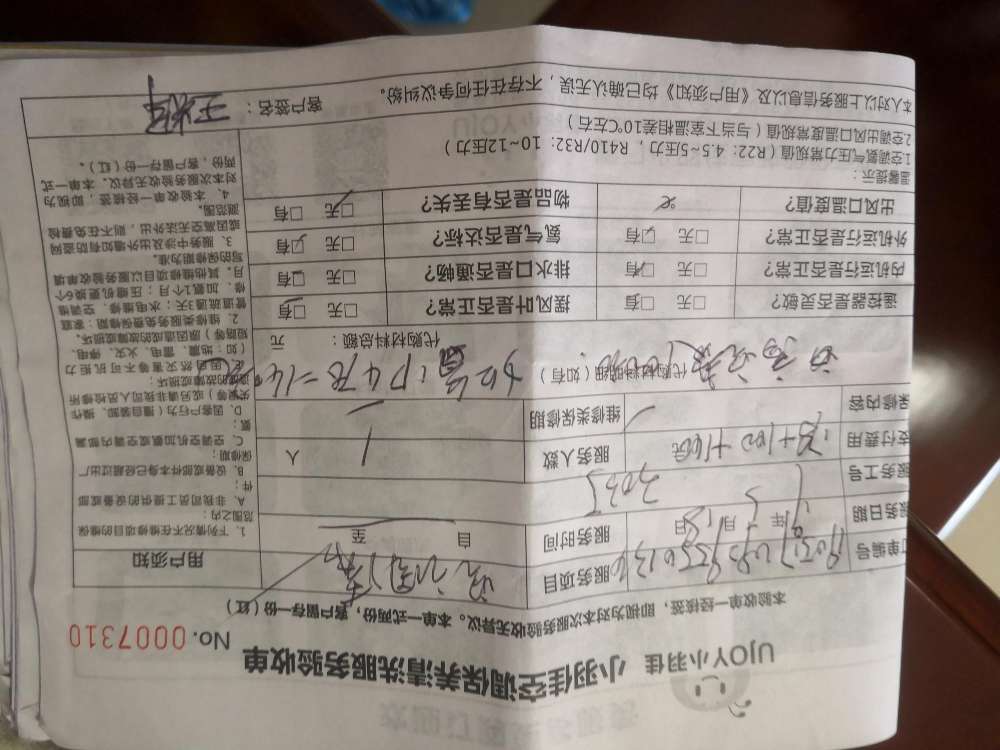 UJOY小羽佳 小羽佳空调保养清洗服务验收单
No. 0007310
本验收单一经接签,即视为对本次服务验收无异议。本单一式两份,客户留存一份(红)
订单编号
服务项目
用户须知
服务日期 年 月 日
服务时间 自 至
服务工号
支付费用
服务人数 1 人
保修内容
维修类保修期
代购材料明细(如有):
代购材料总额: 元
遥控器是否灵敏? □无 □有
摆风叶叶是否正常? □无 □有
内机运行是否正常? □无 □有
排水口是否通畅? □无 □有
外机运行是否正常? □无 □有
氨气是否达标? □无 □有
出风口温度值? ℃
物品是否有丢失? □无 □有
1.下列情况不在维修项目的维保范围之内:
A、非我司员工提供的设备或部件;
B、设备或部件本身已经超过厂保修期;
C、空调空机加氨或空调内部漏氨;
D、因客户行为(擅自装卸、操作失误等)或另请非我司人员检修所造成的故障或损坏;
E、因自然灾害等不可抗拒力(如:地震、雷电、火灾、停电、短路等)原因造成的故障或损坏。
2、维修类服务免费保修期:家庭管道疏通3天;水电维修、空调维修、加氨1个月;压缩机更换6个月。其他维修项目以服务验收单写的保修期为准。
3、服务中涉及出外墙如有防盗网或因高空无法外出,则不在免费检测范围。
4、本验收单一经接签,即视为对本次服务验收无异议。本单一式两份,客户留存一份(红)。
温馨提示:
1.空调氨气压力常规值(R22:4.5~5压力,R410/R32:10~12压力)
2.空调出风口温度常规值(与当下室温相差10℃左右)
本人对以上服务信息以及《用户须知》均已确认无误,不存在任何争议纠纷。
客户签名: